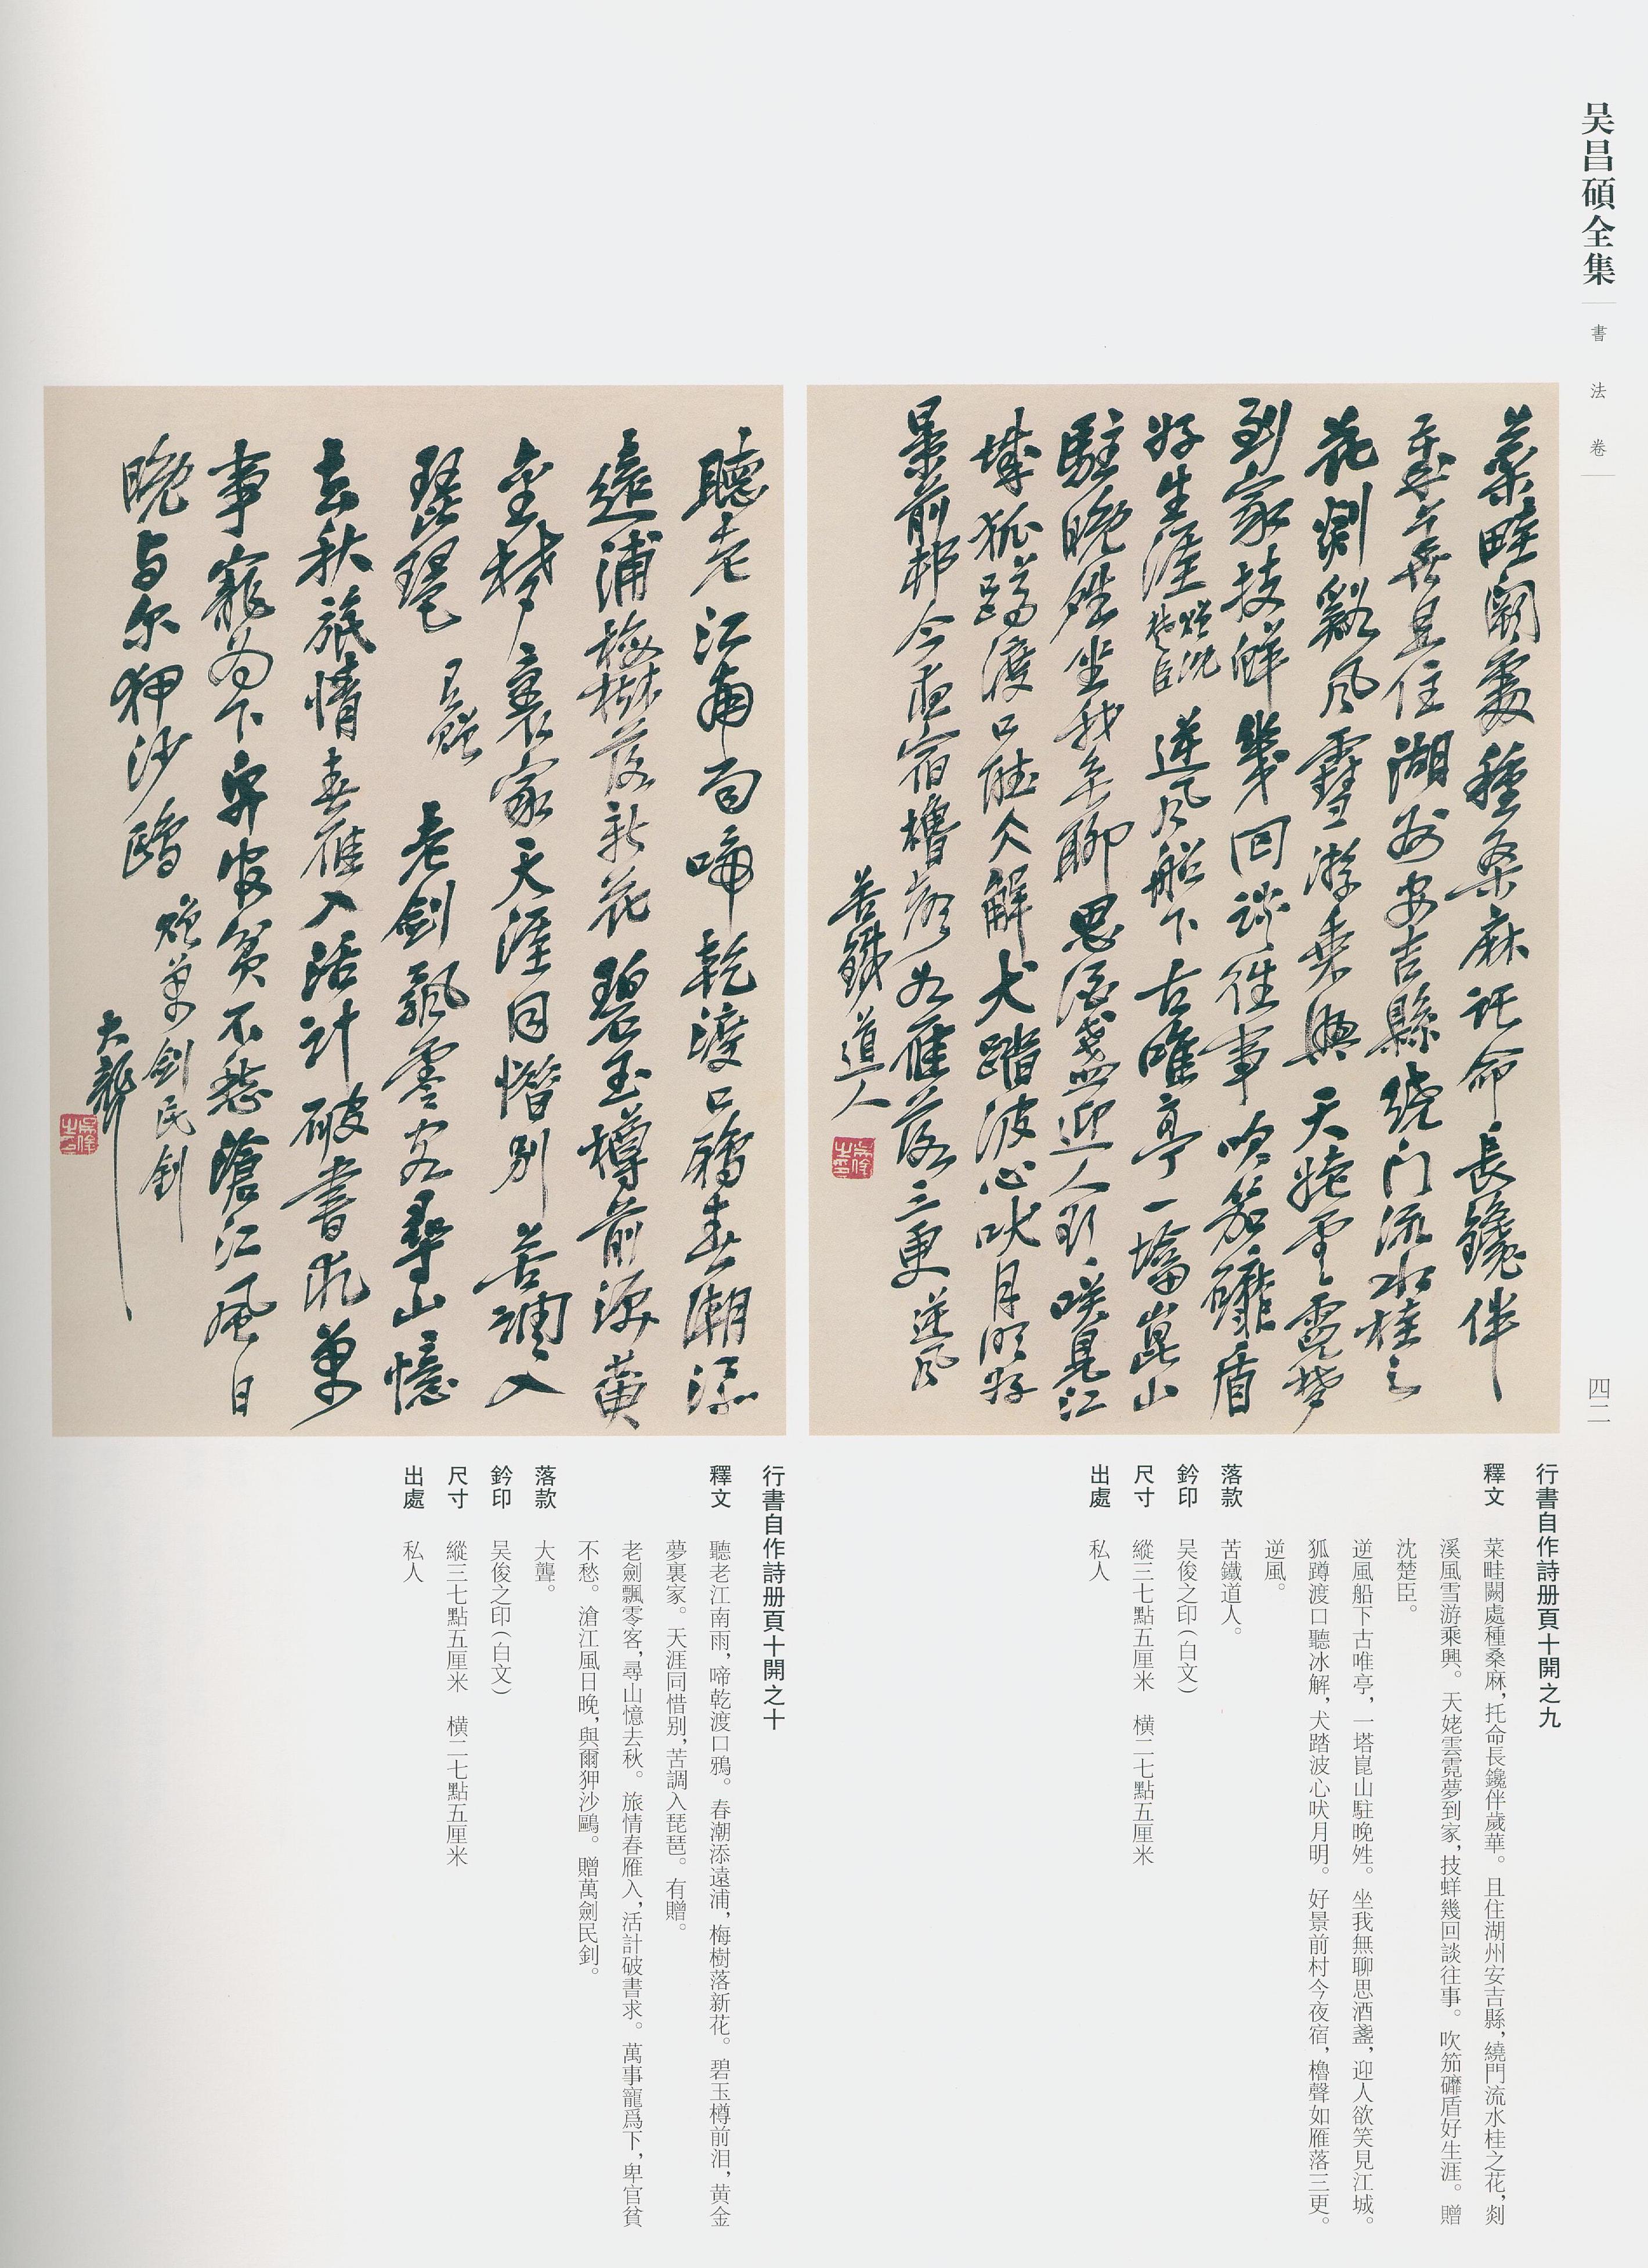 吴昌碩全集
書法卷
四二
菜畦闕處種桑麻託命長鑱伴
歲華且住湖州安吉縣繞門流水桂之
花剡谿風雪游乘興天姥雲霓夢
到家技蛘幾回談往事吹笳礳盾
好生涯贈沈楚臣逆風船下古唯亭一塔崑山
駐晚甠坐我無聊思酒盞迎人欲笑見江
城狐蹲渡口聽仌解犬踏波心吠月明好
景前邨今夜宿櫓聲如雁落三更逆風
苦鐵道人
聽老江南雨啼乾渡口鴉春潮添
遠浦梅樹落新花碧玉樽前淚黄
金夢裏家天涯同惜别苦調入
琵琶有贈老劍飄零客尋山憶
去秋旅情春雁入活計破書求萬
事寵為下卑官貧不愁滄江風日
晚与尔狎沙鷗贈萬劍民釗
大聾
吴俊之印
行書自作詩册頁十開之九
釋文 菜畦闕處種桑麻，托命長鑱伴歲華。且住湖州安吉縣，繞門流水桂之花，剡
溪風雪游乘興。天姥雲霓夢到家，技蛘幾回談往事。吹笳礳盾好生涯。贈
沈楚臣。
逆風船下古唯亭，一塔崑山駐晚甠。坐我無聊思酒盞，迎人欲笑見江城。
狐蹲渡口聽冰解，犬踏波心吠月明。好景前村今夜宿，櫓聲如雁落三更。
逆風。
落款 苦鐵道人。
鈐印 吴俊之印（白文）
尺寸 縱三七點五厘米 横二七點五厘米
出處 私人
行書自作詩册頁十開之十
釋文 聽老江南雨，啼乾渡口鴉。春潮添遠浦，梅樹落新花。碧玉樽前泪，黄金
夢裏家。天涯同惜别，苦調入琵琶。有贈。
老劍飄零客，尋山憶去秋。旅情春雁入，活計破書求。萬事寵爲下，卑官貧
不愁。滄江風日晚，與爾狎沙鷗。贈萬劍民釗。
落款 大聾。
鈐印 吴俊之印（白文）
尺寸 縱三七點五厘米 横二七點五厘米
出處 私人